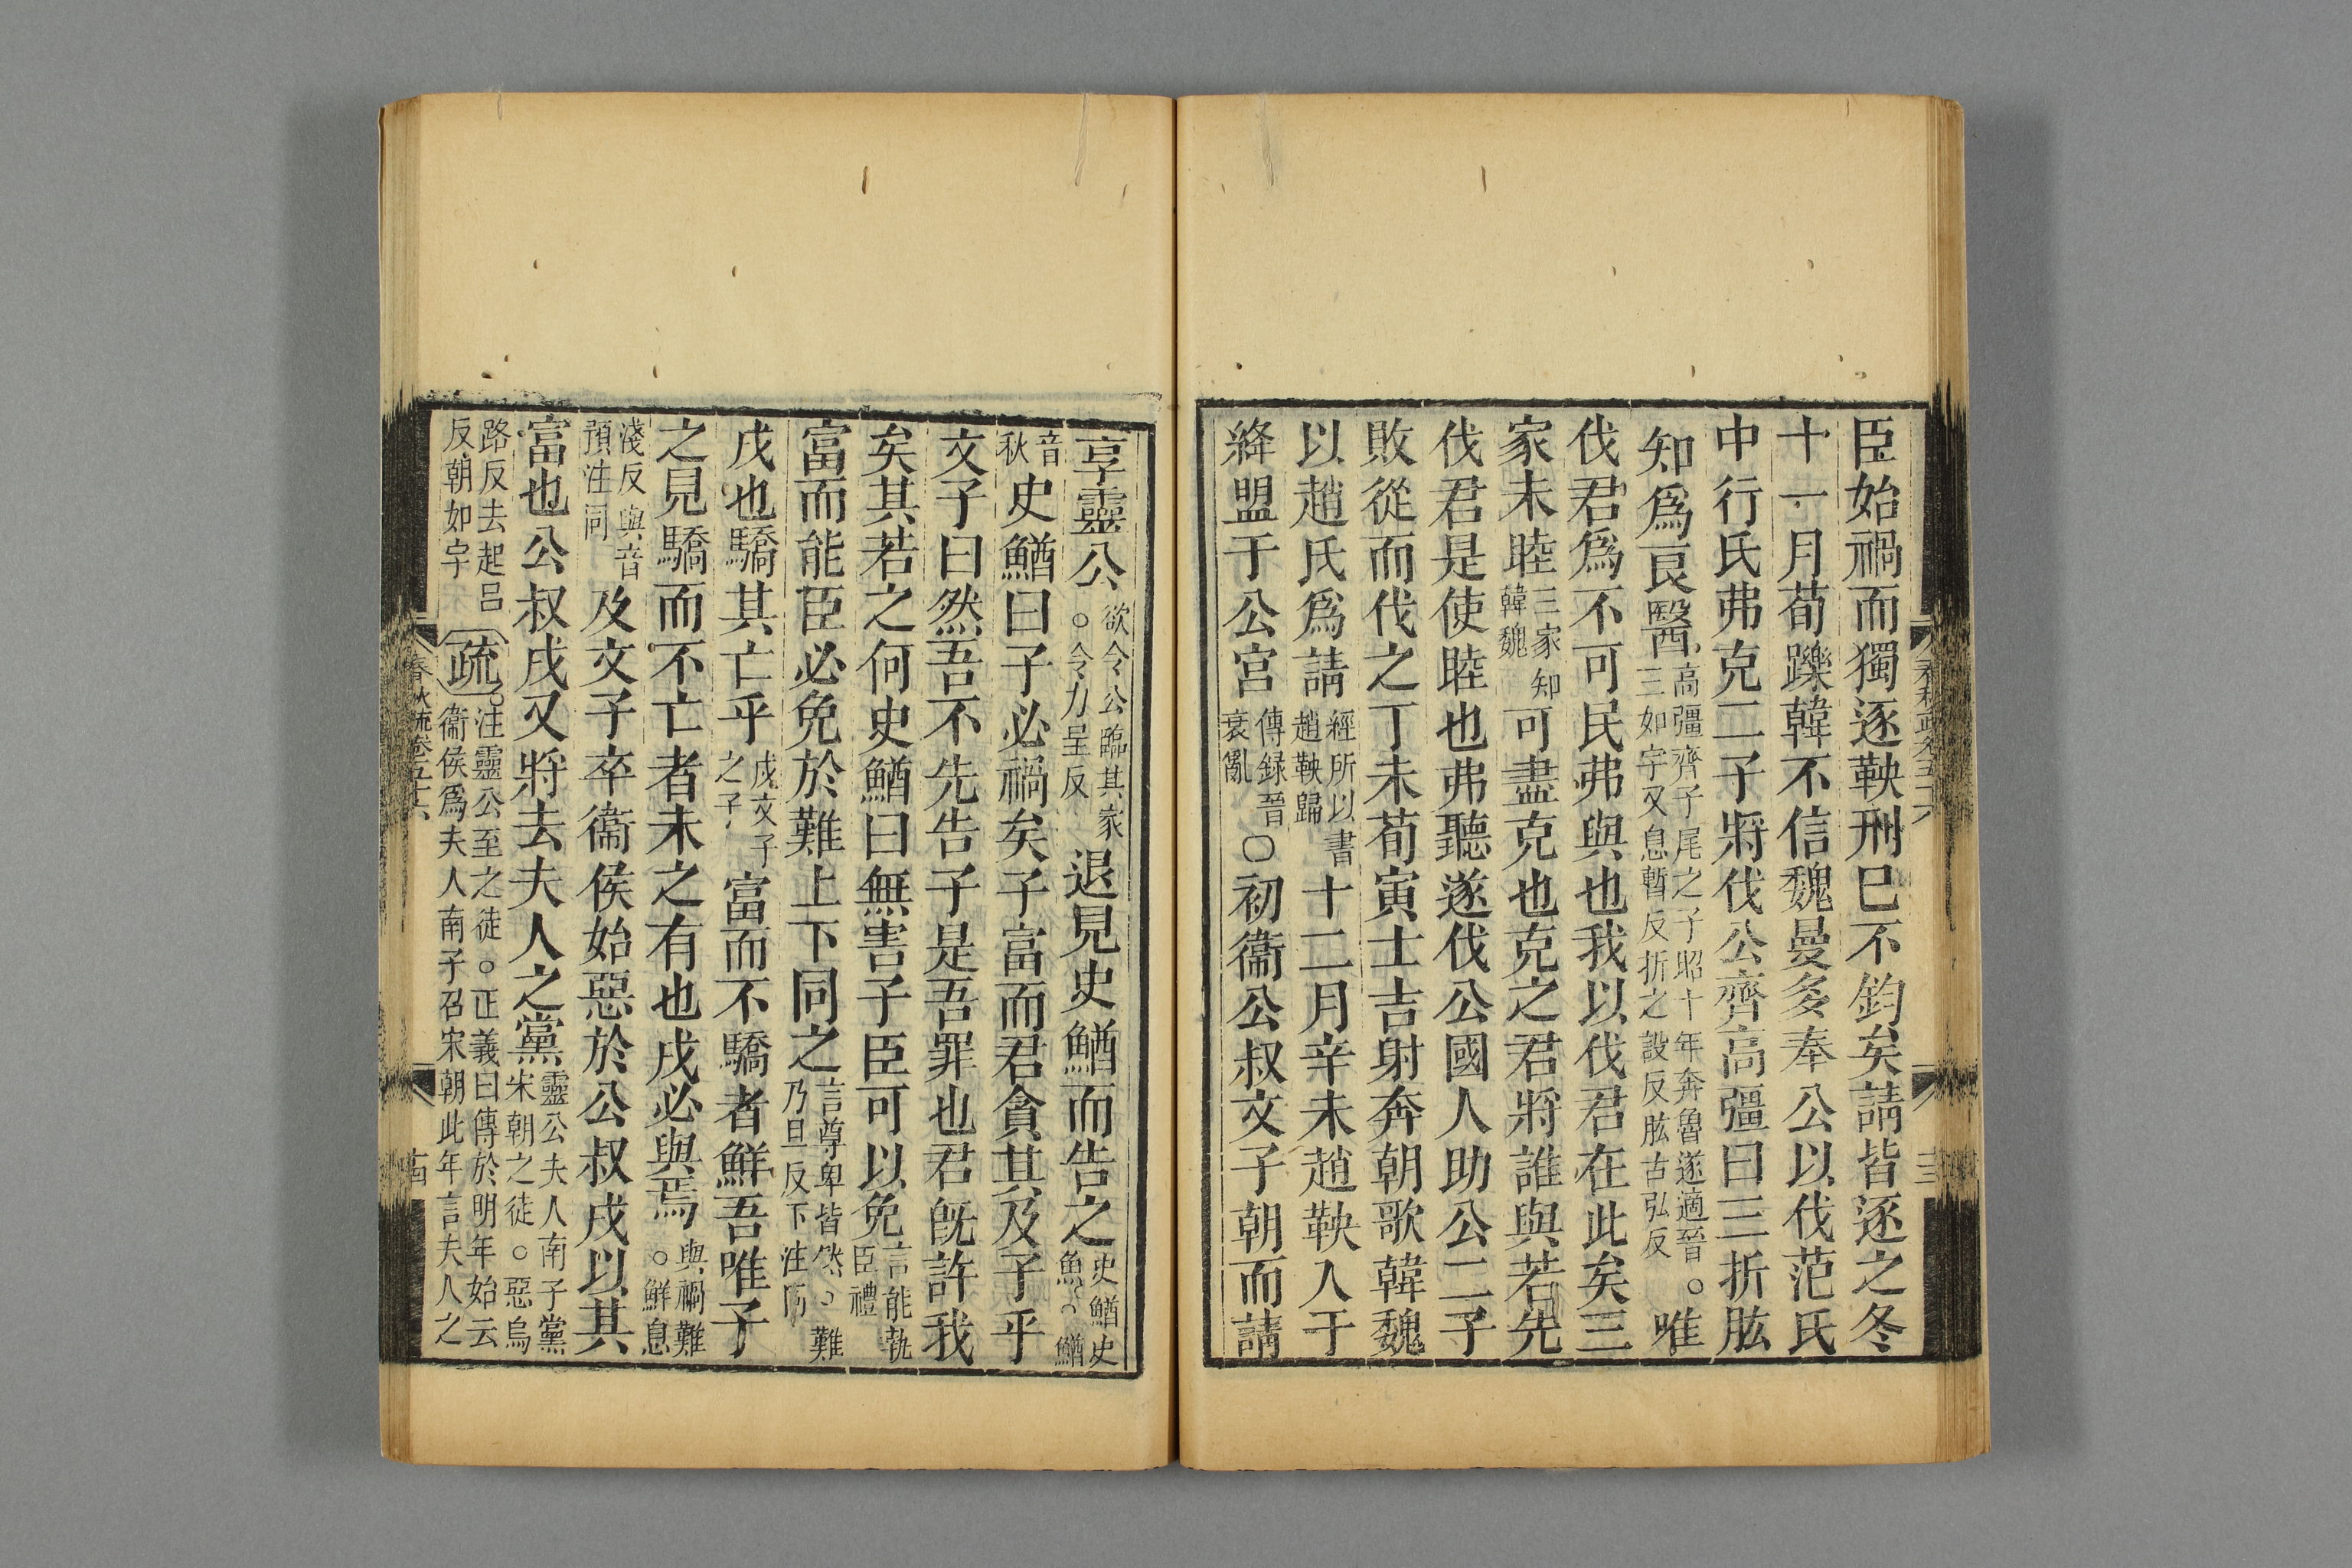 臣始禍而獨逐鞅刑已不鈞矣請皆逐之冬
十一月荀躒韓不信魏曼多奉公以伐范氏
中行氏弗克二子將伐公齊高彊曰三折肱
知爲良醫高彊齊子尾之子昭十年奔魯遂適晉。三如字又息暫反折之設反肱古弘反唯
伐君爲不可民弗與也我以伐君在此矣三
家未睦三家知韓魏可盡克也克之君將誰與若先
伐君是使睦也弗聽遂伐公國人助公二子
敗從而伐之丁未荀寅士吉射奔朝歌韓魏
以趙氏爲請經所以書趙鞅歸十二月辛未趙鞅入于
絳盟于公宮傳録晉衰亂○初衞公叔文子朝而請
享靈公欲令公臨其家。令力呈反退見史鰌而告之史鰌史魚。鰌
音秋史鰌曰子必禍矣子富而君貪其及子乎
文子曰然吾不先告子是吾罪也君旣許我
矣其若之何史鰌曰無害子臣可以免言能執臣禮
富而能臣必免於難上下同之言尊卑皆然。難乃旦反下注同
戍也驕其亡乎戍文子之子富而不驕者鮮吾唯子
之見驕而不亡者未之有也戍必與焉與禍難。鮮息
淺反與音預注同及文子卒衞侯始惡於公叔戍以其
富也公叔戍又將去夫人之黨靈公夫人南子黨宋朝之徒。惡烏
路反去起呂反朝如字疏注靈公至之徒。正義曰傳於明年始云衞侯爲夫人南子召宋朝此年言夫人之
春秋疏卷五十六